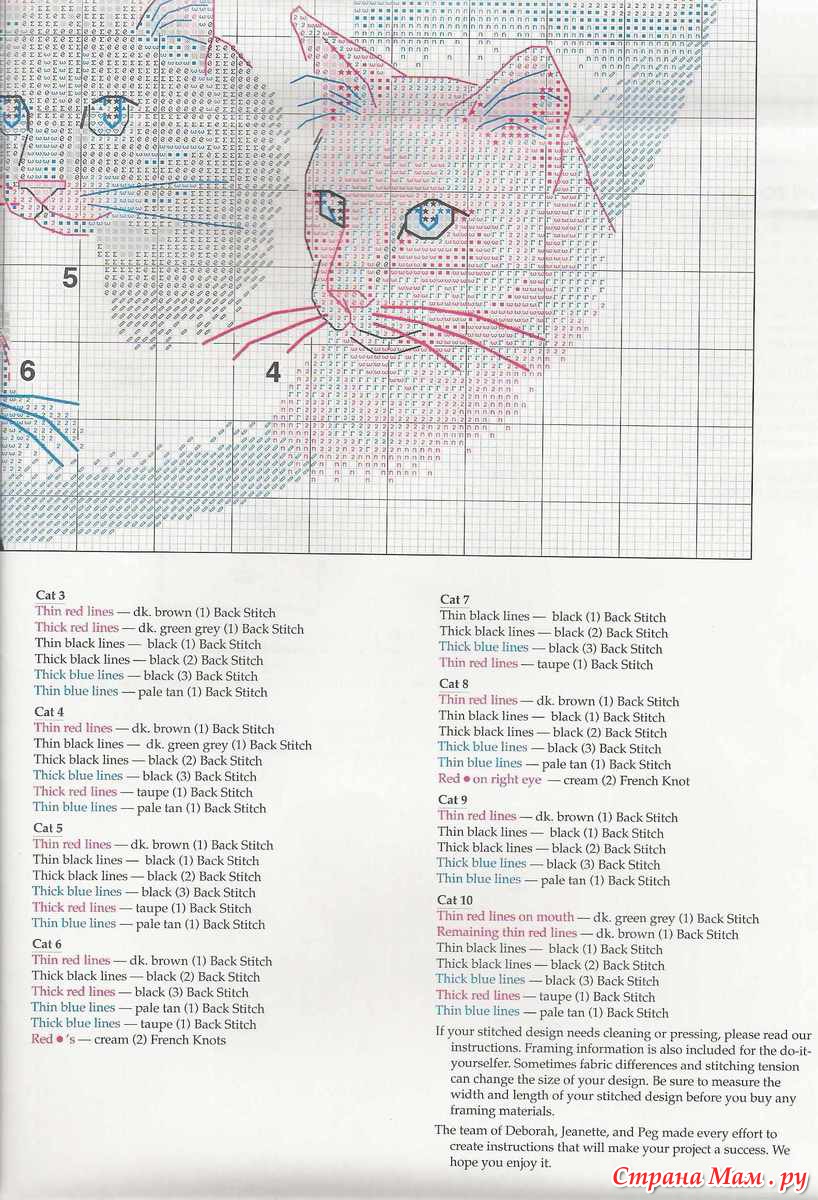 5
6
4
Cat 3
Thin red lines — dk. brown (1) Back Stitch
Thick red lines — dk. green grey (1) Back Stitch
Thin black lines — black (1) Back Stitch
Thick black lines — black (2) Back Stitch
Thick blue lines — black (3) Back Stitch
Thin blue lines — pale tan (1) Back Stitch
Cat 4
Thin red lines — dk. brown (1) Back Stitch
Thin black lines — dk. green grey (1) Back Stitch
Thick black lines — black (2) Back Stitch
Thick blue lines — black (3) Back Stitch
Thick red lines — taupe (1) Back Stitch
Thin blue lines — pale tan (1) Back Stitch
Cat 5
Thin red lines — dk. brown (1) Back Stitch
Thin black lines — black (1) Back Stitch
Thick black lines — black (2) Back Stitch
Thick blue lines — black (3) Back Stitch
Thick red lines — taupe (1) Back Stitch
Thin blue lines — pale tan (1) Back Stitch
Cat 6
Thin red lines — dk. brown (1) Back Stitch
Thick black lines — black (2) Back Stitch
Thick red lines — black (3) Back Stitch
Thin blue lines — pale tan (1) Back Stitch
Thick blue lines — taupe (1) Back Stitch
Red ●'s — cream (2) French Knots
Cat 7
Thin black lines — black (1) Back Stitch
Thick black lines — black (2) Back Stitch
Thick blue lines — black (3) Back Stitch
Thin red lines — taupe (1) Back Stitch
Cat 8
Thin red lines — dk. brown (1) Back Stitch
Thin black lines — black (1) Back Stitch
Thick black lines — black (2) Back Stitch
Thick blue lines — black (3) Back Stitch
Thin blue lines — pale tan (1) Back Stitch
Red ● on right eye — cream (2) French Knot
Cat 9
Thin red lines — dk. brown (1) Back Stitch
Thin black lines — black (1) Back Stitch
Thick black lines — black (2) Back Stitch
Thick blue lines — black (3) Back Stitch
Thin blue lines — pale tan (1) Back Stitch
Cat 10
Thin red lines on mouth — dk. green grey (1) Back Stitch
Remaining thin red lines — dk. brown (1) Back Stitch
Thin black lines — black (1) Back Stitch
Thick black lines — black (2) Back Stitch
Thick blue lines — black (3) Back Stitch
Thick red lines — taupe (1) Back Stitch
Thin blue lines — pale tan (1) Back Stitch
If your stitched design needs cleaning or pressing, please read our
instructions. Framing information is also included for the do-it-
yourselfer. Sometimes fabric differences and stitching tension
can change the size of your design. Be sure to measure the
width and length of your stitched design before you buy any
framing materials.
The team of Deborah, Jeanette, and Peg made every effort to
create instructions that will make your project a success. We
hope you enjoy it.
Страна Мам.ру